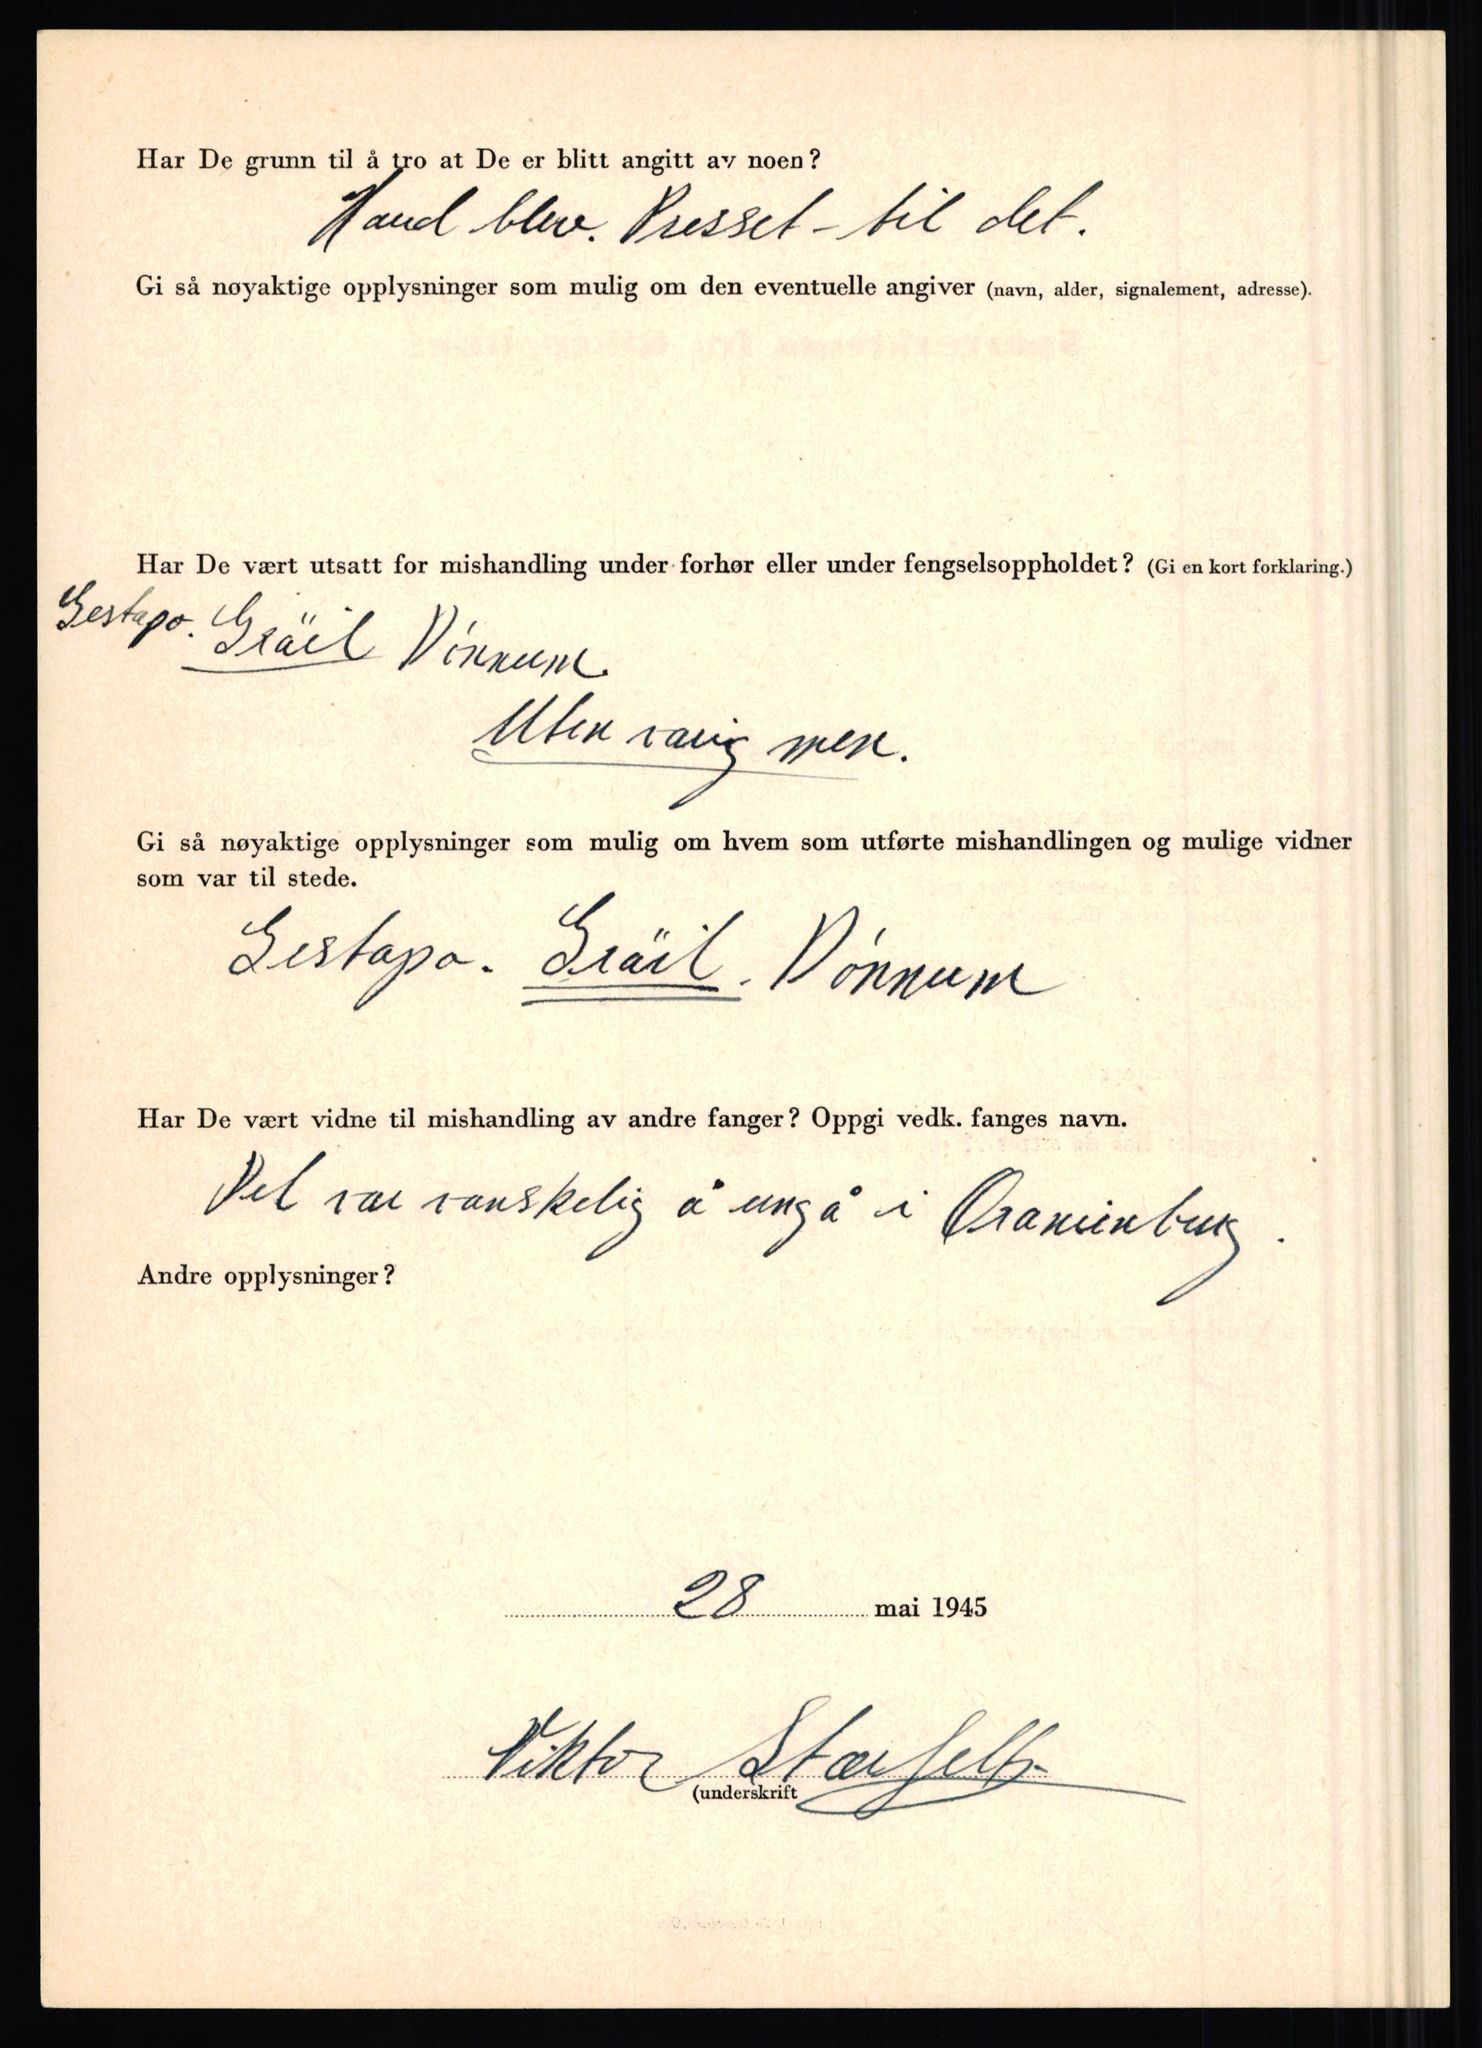 Har De grunn til å tro at De er blitt angitt av noen?
Hand blev. Presset - til det.
Gi så nøyaktige opplysninger som mulig om den eventuelle angiver (navn, alder, signalement, adresse).
Har De vært utsatt for mishandling under forhør eller under fengselsoppholdet? (Gi en kort forklaring.)
Gestapo. Gräil Dönnum.
Uten varig men.
Gi så nøyaktige opplysninger som mulig om hvem som utførte mishandlingen og mulige vidner
som var til stede.
Gestapo. Gräil. Dönnum
Har De vært vidne til mishandling av andre fanger? Oppgi vedk. fanges navn.
Det var vanskelig å ungå i Oranienburg.
Andre opplysninger?
28 mai 1945
Viktor
(underskrift